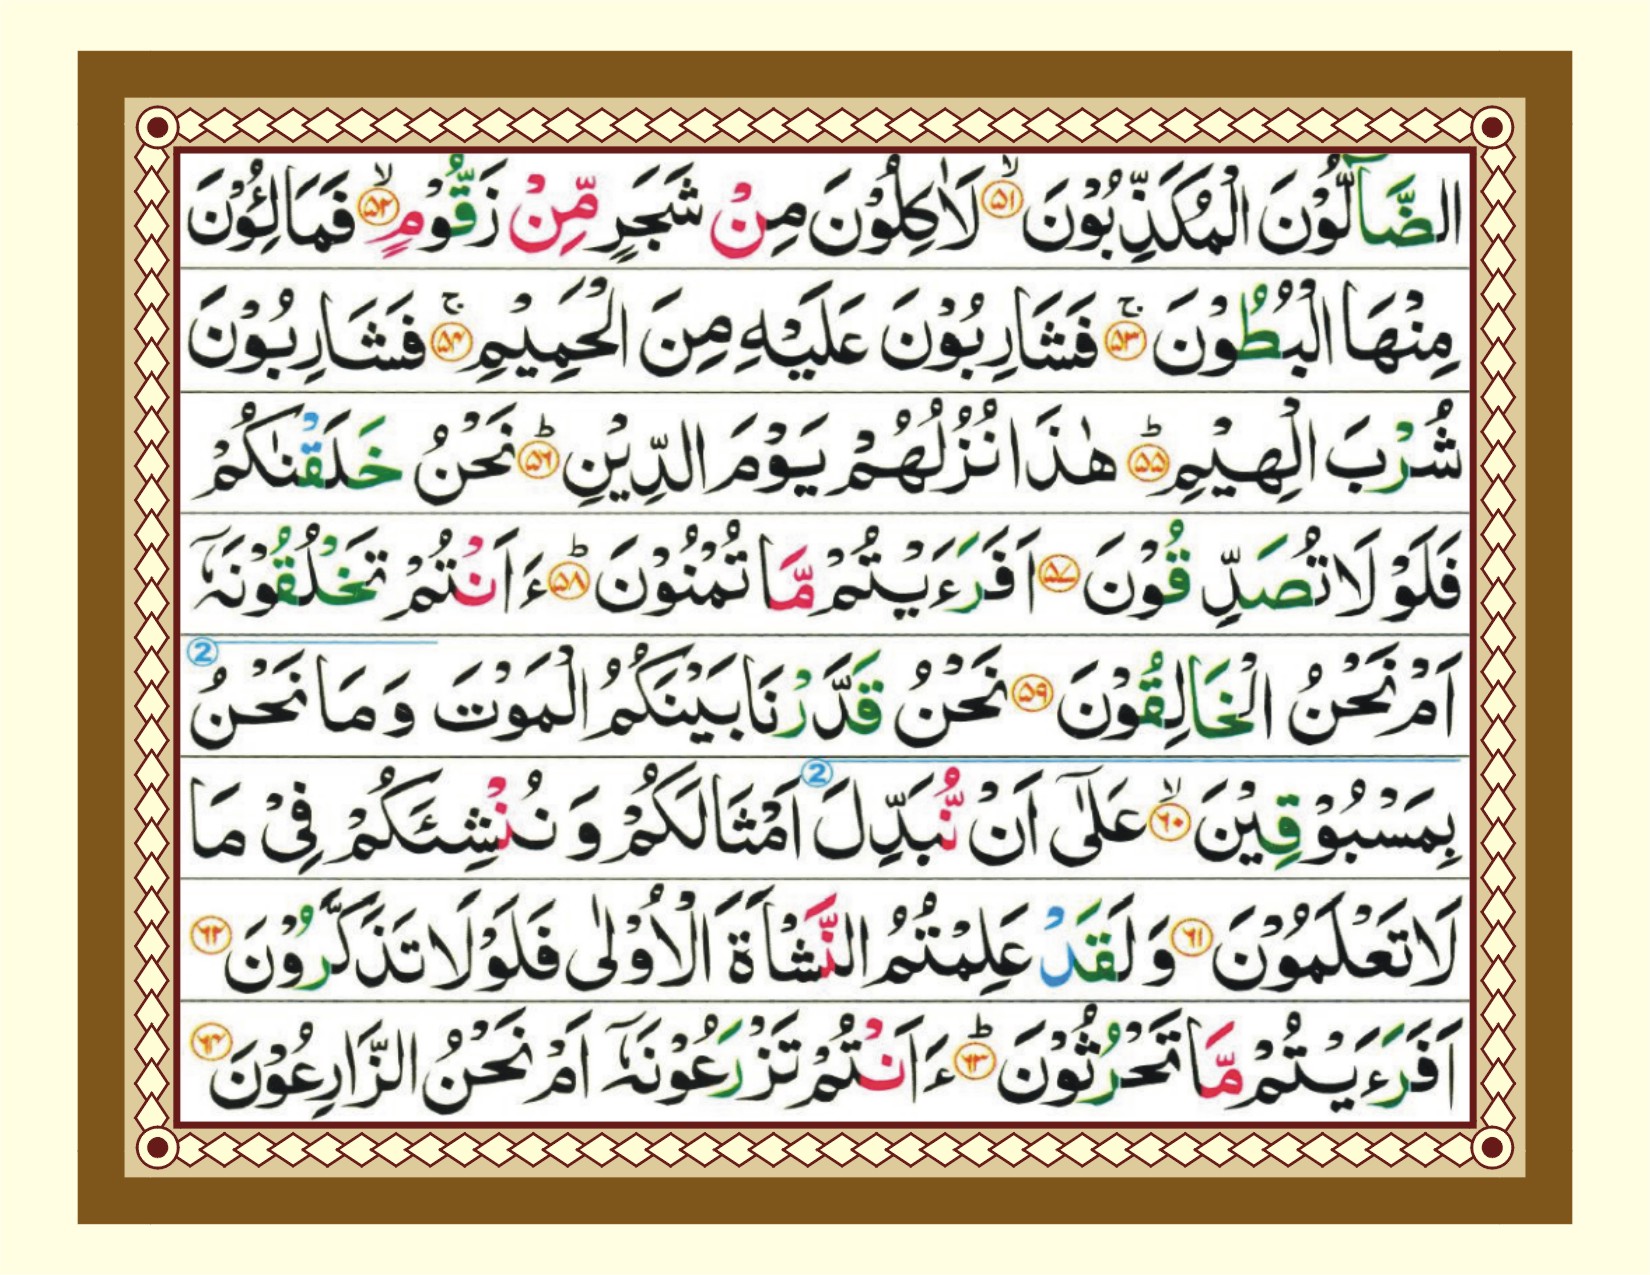 الضَّآلُّوْنَ الْمُكَذِّبُوْنَ ۙ۵۱ لَاٰكِلُوْنَ مِنْ شَجَرٍ مِّنْ زَقُّوْمٍ ۙ۵۲ فَمَالِـُٔوْنَ
مِنْهَا الْبُطُوْنَ ۚ۵۳ فَشَارِبُوْنَ عَلَيْهِ مِنَ الْحَمِيْمِ ۚ۵۴ فَشَارِبُوْنَ
شُرْبَ الْهِيْمِ ؕ۵۵ هٰذَا نُزُلُهُمْ يَوْمَ الدِّيْنِ ؕ۵۶ نَحْنُ خَلَقْنٰكُمْ
فَلَوْلَا تُصَدِّقُوْنَ ۵۷ اَفَرَءَيْتُمْ مَّا تُمْنُوْنَ ؕ۵۸ ءَاَنْتُمْ تَخْلُقُوْنَهٗۤ
2
اَمْ نَحْنُ الْخَالِقُوْنَ ۵۹ نَحْنُ قَدَّرْنَا بَيْنَكُمُ الْمَوْتَ وَمَا نَحْنُ
بِمَسْبُوْقِيْنَ ۙ۶۰ عَلٰٓى اَنْ نُّبَدِّلَ 2 اَمْثَالَكُمْ وَنُنْشِئَكُمْ فِىْ مَا
لَا تَعْلَمُوْنَ ۶۱ وَلَقَدْ عَلِمْتُمُ النَّشْاَةَ الْاُوْلٰى فَلَوْلَا تَذَكَّرُوْنَ ۶۲
اَفَرَءَيْتُمْ مَّا تَحْرُثُوْنَ ؕ۶۳ ءَاَنْتُمْ تَزْرَعُوْنَهٗۤ اَمْ نَحْنُ الزَّارِعُوْنَ ۶۴